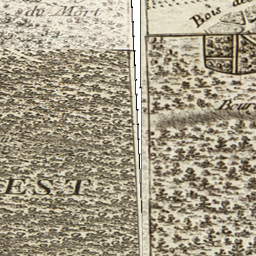 du Mort
Bois de
Beur
EST